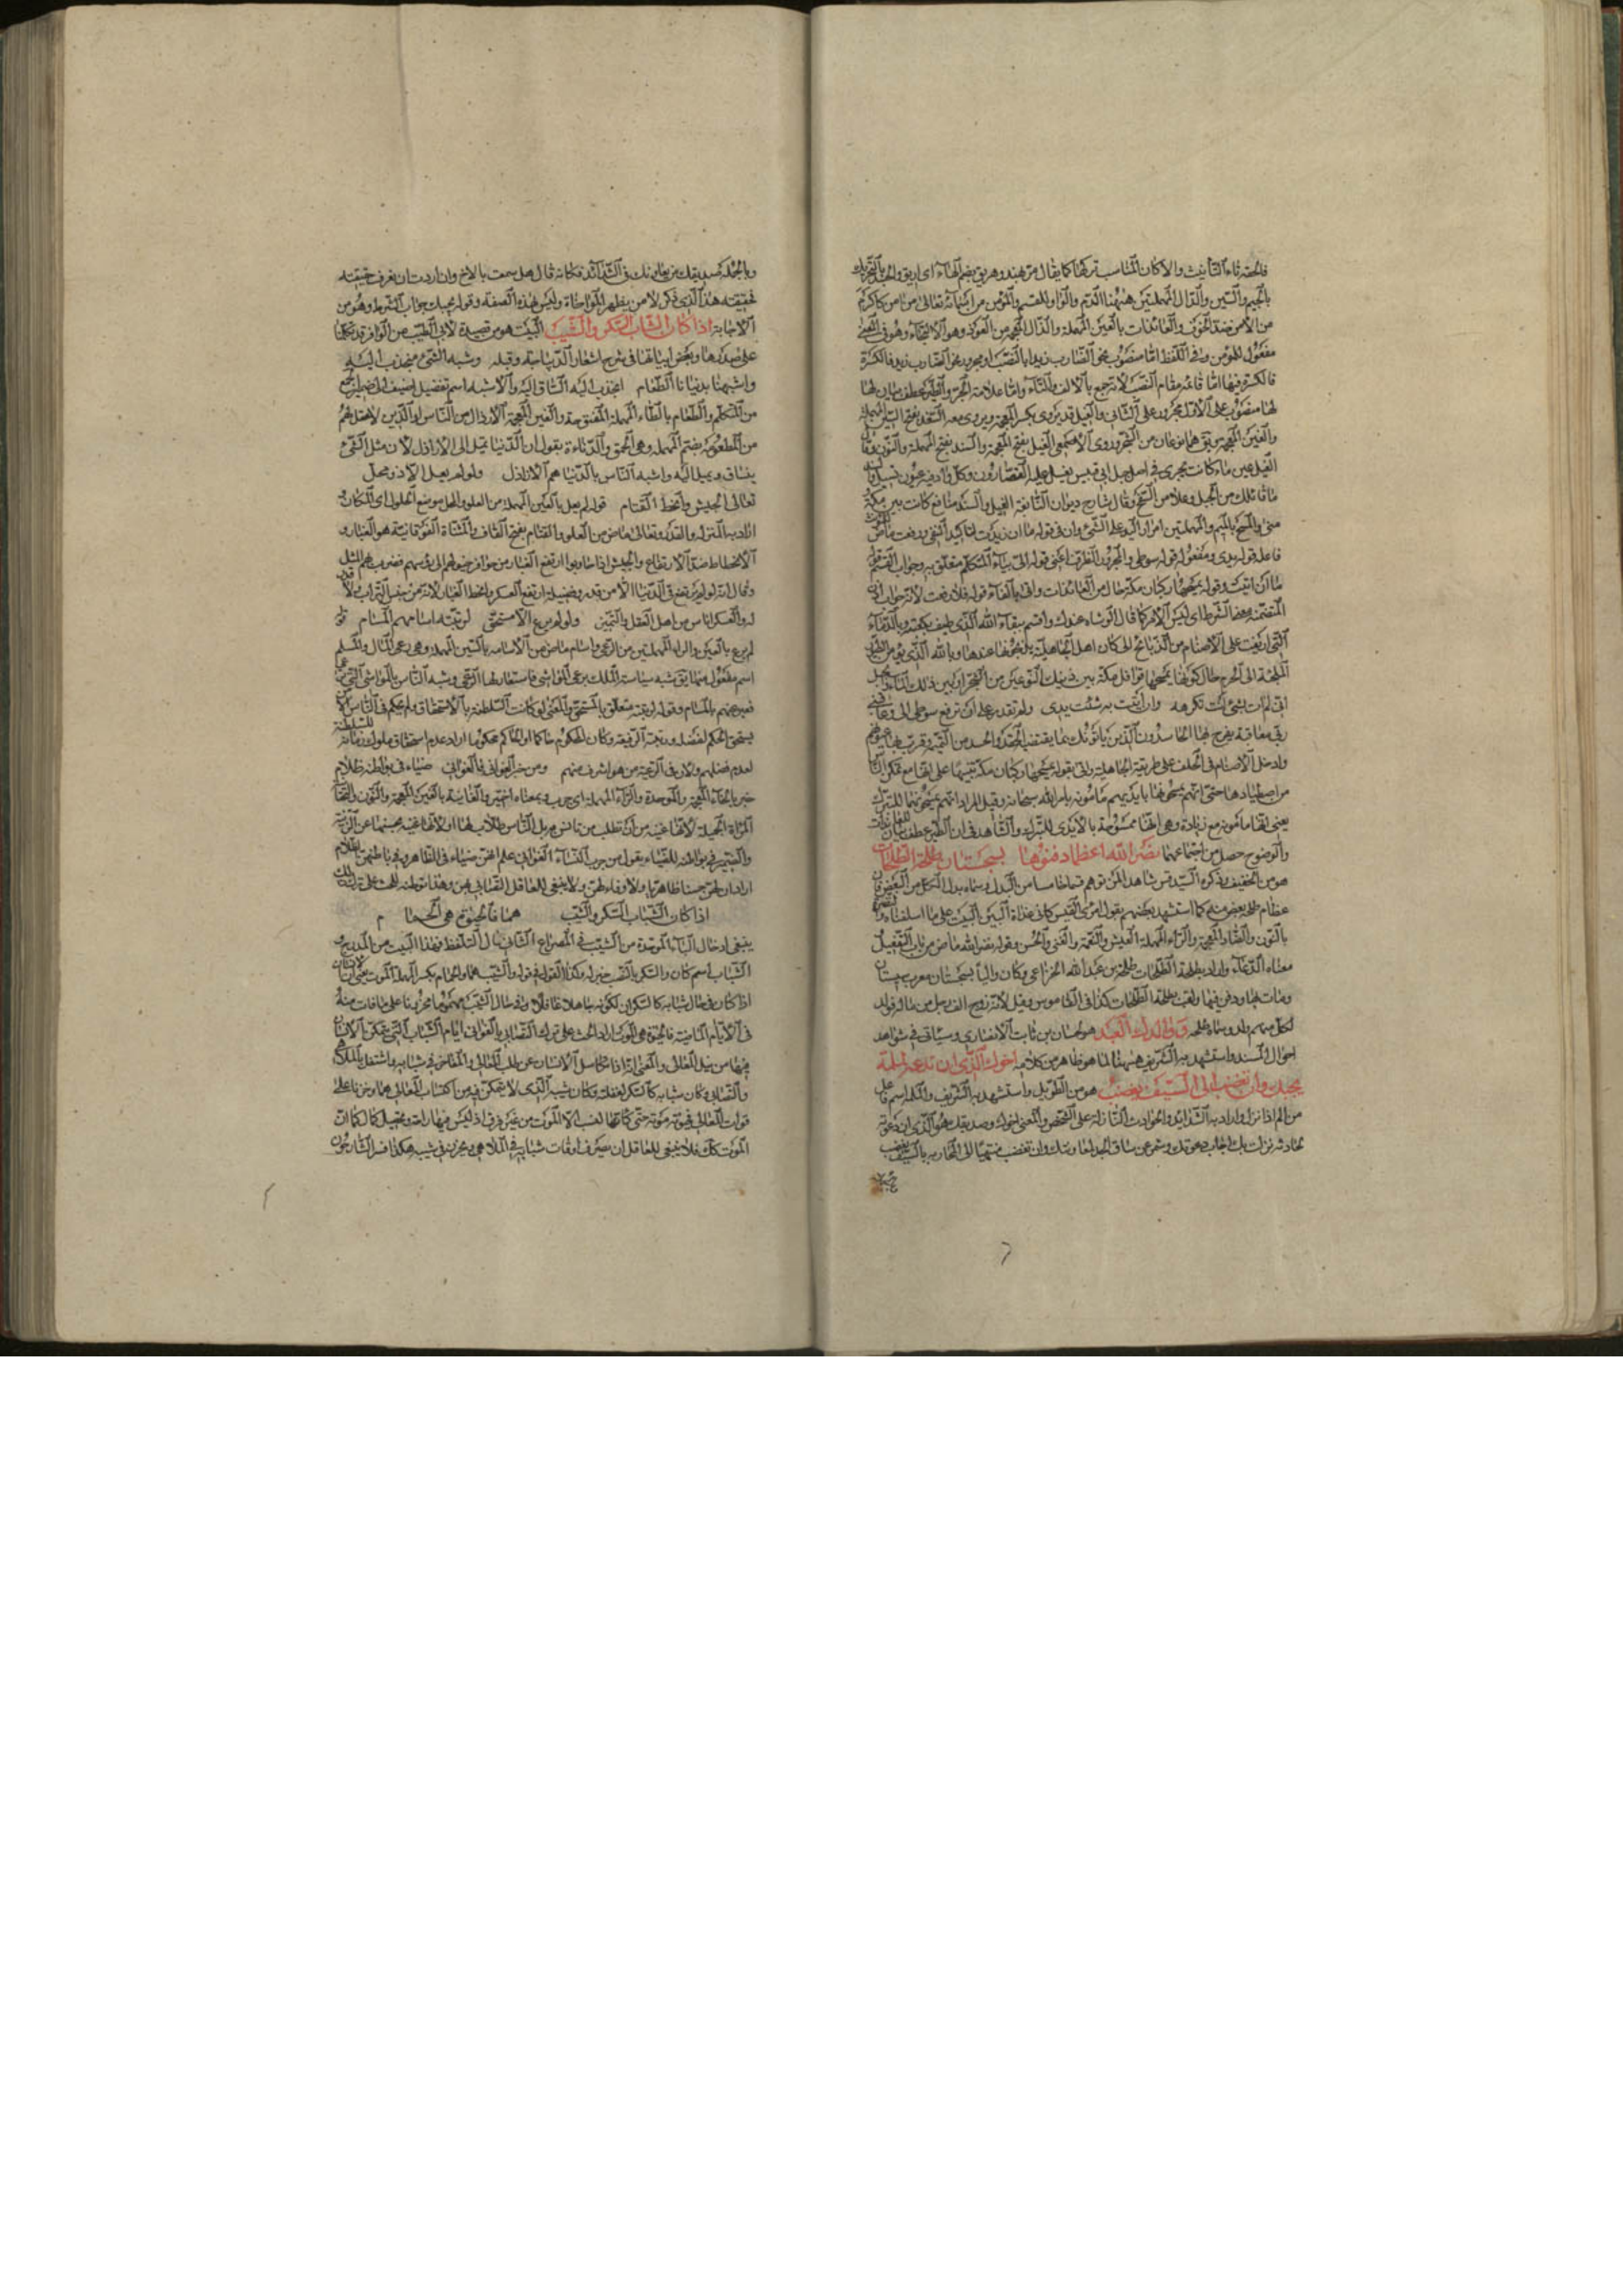 فلحقته تاء التأنيث والا كان المناسب تركها كما يقال مررت بهند وهريق بضم الهاء اى اريق والجسد بالتحريك
بالجيم والسين والدال المهملتين ههنا الدم والواو للقسم والمؤمن من اسمائه تعالى
من الامن ضد الخوف والعائذات بالعين المهملة والذال المعجمة من العوذ وهو الالتجاء وهو فى المعنى
مفعول للمؤمن وفى اللفظ اما منصوب نحو الضارب زيدا بالنصب او مجرور نحو الضارب زيد فالكسرة
فالكسرة فيها اما قائمة مقام النصب لانه جمع بالالف والتاء واما علامة الجر والطير عطف بيان لها
لها منصوب على الاول مجرور على الثانى والغيل قد يروى بكسر المعجمة ويروى معه السعد بفتح السين المهملة
والعين المهملة هما نوعان من الشجر وروى الاصمعى الغيل بفتح المعجمة والسند بفتح المهملة والنون وقال
الغيل عين ماء كانت تجرى فى اصل جبل ابى قبيس يغسل عليه القصارون وكل واد فيه عيون تسيل
ما قابلك من الجبل وعلا من السفح وقال شارح ديوان النابغة الغيل والسند مواضع كانت بين مكة
منى والمسح بالميم والمهملتين امرار اليد على الشىء وان فى قوله ما ان زيدت لتاكيد النفى ورفعت ماض
فاعله قوله يدى ومفعوله قوله سوطى والمجرور الظرف اعنى قوله الىّ بياء المتكلم متعلق به وجواب القسم قوله
ما ان اتيت وقوله يمسحها ركبان مكة حال من العائذات واتى بالفاء قوله فلا رفعت لانه جواب اذن
المتضمنة معنى الشرط اى ليس الامر كما قال الوشاة عندك واقسم ببقاء الله الذى طيف بكعبته وبالدماء
التى اريقت على الاصنام من الذبائح التى كان اهل الجاهلية يذبحونها عندها وبالله الذى يؤمن الطير
الملتجئة الى الحرم حال كونها يمسحها قوافل مكة بين ذينك النوعين من الشجر او بين ذلك الماء والجبل
انى لم ات بشئ انت تكرهه وان اتيت به شلت يدى ولم تقدر على ان ترفع سوطى الى وعاقبنى
ربى معاقبة يفرح بها الحاسدون الذين ياتونك بما يقتضيه الحقد والحسد من
وادخل الاصنام فى الحلف على طريقة الجاهلية واتى بقوله يمسحها ركبان مكة تنبيها على انها مع تمكن الناس
من اصطيادها حتى انهم يمسحونها بايديهم مامونة بامر الله سبحانه وقيل المراد انهم يمسحونها للتبرك
يعنى انها مامونة مع زيادة وهى انها ممسوحة بالايدى للتبرك والشاهد فى ان الطير عطف بيان للعائذات
والوضوح حصل من اجتماعهما نضر الله اعظما دفنوها بسجستان طلحة الطلحات
هو من الخفيف وذكره السيد قدس شاهدا لمن توهم قسما خامسا من البدل وسماه بدل الكل من البعض فان
عظام طلحة بعض منه كما استشهد بعضهم بقول امرئ القيس كانى غداة البين البيت على ما اسلفناه ونضر
بالنون والضاد المعجمة والراء المهملة العيش والنعمة والغنى والحسن وقوله نضر الله ماض من باب التفعيل
معناه الدعاء واراد بطلحة الطلحات طلحة بن عبد الله الخزاعى وكان واليا بسجستان معرب سيستان
ومات بها ودفن فيها ولقب بطلحة الطلحات كذا فى القاموس وقيل لانه زوج الف رجل من ماله فولد
لكل منهم ولد وسماه طلحة وذلك العبد هو لحسان بن ثابت الانصارى وسياتى فى شواهد
احوال المسند واستشهد به الشريف ههنا لما هو ظاهر من كلامه اخوك الذى ان تدعه لملمة
يجبك وان تغضب الى السيف يغضب هو من الطويل واستشهد به الشريف والملمة اسم فاعل
من الم اذا نزل واراد به الشدائد والحوادث النازلة على الشخص والمعنى اخوك وصديقك هو الذى ان دعوته
لحادثة نزلت بك اجاب دعوتك وشمر عن ساق الجد لمعاونتك وان تغضب منتهيا الى المحاربة بالسيف يغضب
وبالجملة صديقك من يعاونك فى الشدائد فكانه قال هل سمعت بالاخ وان اردت ان تعرف حقيقته
فحقيقته هذا الذى ذكر لا من يظهر المواخاة وليس بهذه الصفة وقوله يجبك جواب الشرط وهو من
الاجابة اذا كان الشباب السكر والشيب البيت هو من قصيدة لابى الطيب من الوافر قد تكلمنا
على صدرها وبعض ابياتها فى شرح اشعار الديباجة وقبله وشبه الشئ منجذب اليه
واشبهنا بدنيانا الطغام انجذب اليه انساق اليه والاشبه اسم تفضيل اضيف الى ضمير جمع
من المتكلم والطغام بالطاء المهملة المفتوحة والغين المعجمة الارذال من الناس او الذين لا عقل لهم
من الطغومة بضم المهملة وهى الحمق والدناءة يقول ان الدنيا تميل الى الاراذل لان مثل الشئ
ينساق ويميل اليه واشبه الناس بالدنيا هم الاراذل ولو لم يعل الا ذو محل
تعالى الجيش وانحط القتام قوله لم يعل بالعين المهملة من العلو والمحل موضع الحلول اى المكان و
اراد به المنزلة والقدر وتعالى ماض من العلو والقتام بفتح القاف والمثناة الفوقانية هو الغبار و
الانحطاط ضد الارتفاع والجيش اذا ساروا ارتفع الغبار من حوافر خيولهم الى رؤسهم فضرب بهم المثل
وقال انه لو لم يرتفع فى الدنيا الا من قدره وفضيلة ارتفع العسكر وانحط الغبار لانه من جنس التراب ولا قدر
له والعسكر اناس من اهل العقل والتمييز ولو لم يرع الا مستحق لرتبته اسامهم المسام قوله
لم يرع بالعين والراء المهملتين من الرعى واسام ماض من الاسامة بالسين المهملة وهى رعى المال والمسام
اسم مفعول منها شبه سياسة الملك برعى المواشى فاستعار لها الرعى وشبه الناس بالمواشى التى
فعبر عنهم بالمسام وقوله لرتبته متعلق بالمستحق والمعنى لو كانت السلطنة بالاستحقاق ولم يحكم فى الناس الا من
يستحق الحكم لفضله ورتبته الرفيعة وكان المحكوم حاكما او الحاكم محكوما اراد عدم استحقاق ملوك زمانه للسلطنة
لعدم فضلهم ولان فى الرعية من هو اشرف منهم ومن خبر الغوانى فالغوانى ضياء فى بواطنه ظلام
خبر بالخاء المعجمة والموحدة والراء المهملة اى جرب وبمعناه اختبر والغانية بالغين المعجمة والنون والتحتانية
المرأة الجميلة لانها غنية من ان تطلب من تانس به بل الناس طلاب لها او لانها غنية بحسنها عن الزينة
والضمير فى بواطنه للضياء يقول من جرب النساء الغوانى علم انهن ضياء فى الظاهر وفى باطنهن الظلام
اراد ان لهن حسنا ظاهريا ولا وفاء لهن ولا ينبغى للعاقل التصابى بهن وهذا توطئة للحث على ترك ذلك
اذا كان الشباب السكر والشيب هما فالحيوة هى الحمام م
ينبغى ادخال الباء الموحدة من الشيب فى المصراع الثانى حال التلفظ فهذا البيت من المدرج و
الشباب اسم كان والسكر بالنصب خبره وكذا القول فى قوله والشيب هما والحمام بكسر المهملة الموت يعنى ان الانسان
اذا كان فى حال شبابه كالسكران لكونه جاهلا غافلا وفى حال الشيب مهموما محزونا على ما فات منه
فى الايام الماضية فالحيوة هى الموت اراد الحث على ترك التصابى بالغوانى ايام الشباب التى يتمكن الانسان
فيها من نيل المعالى والمعنى انه اذا تكاسل الانسان عن طلب المعالى والمفاخر فى شبابه واشتغل بالملاهى
والتصابى وكان شبابه كالسكر لغفلته وكان شيبه الذى لا يتمكن فيه من اكتساب المعالى هما وحزنا على
فوات المعالى فحيوته موته حتى كانها نفس الموت من غير فرق اذ ليس فيها راحة وتحصيل كمال كما ان
الموت كك فلا ينبغى للعاقل ان يصرف اوقات شبابه فى الملاهى ويحزن فى شيبه هكذا فسر الشارحون